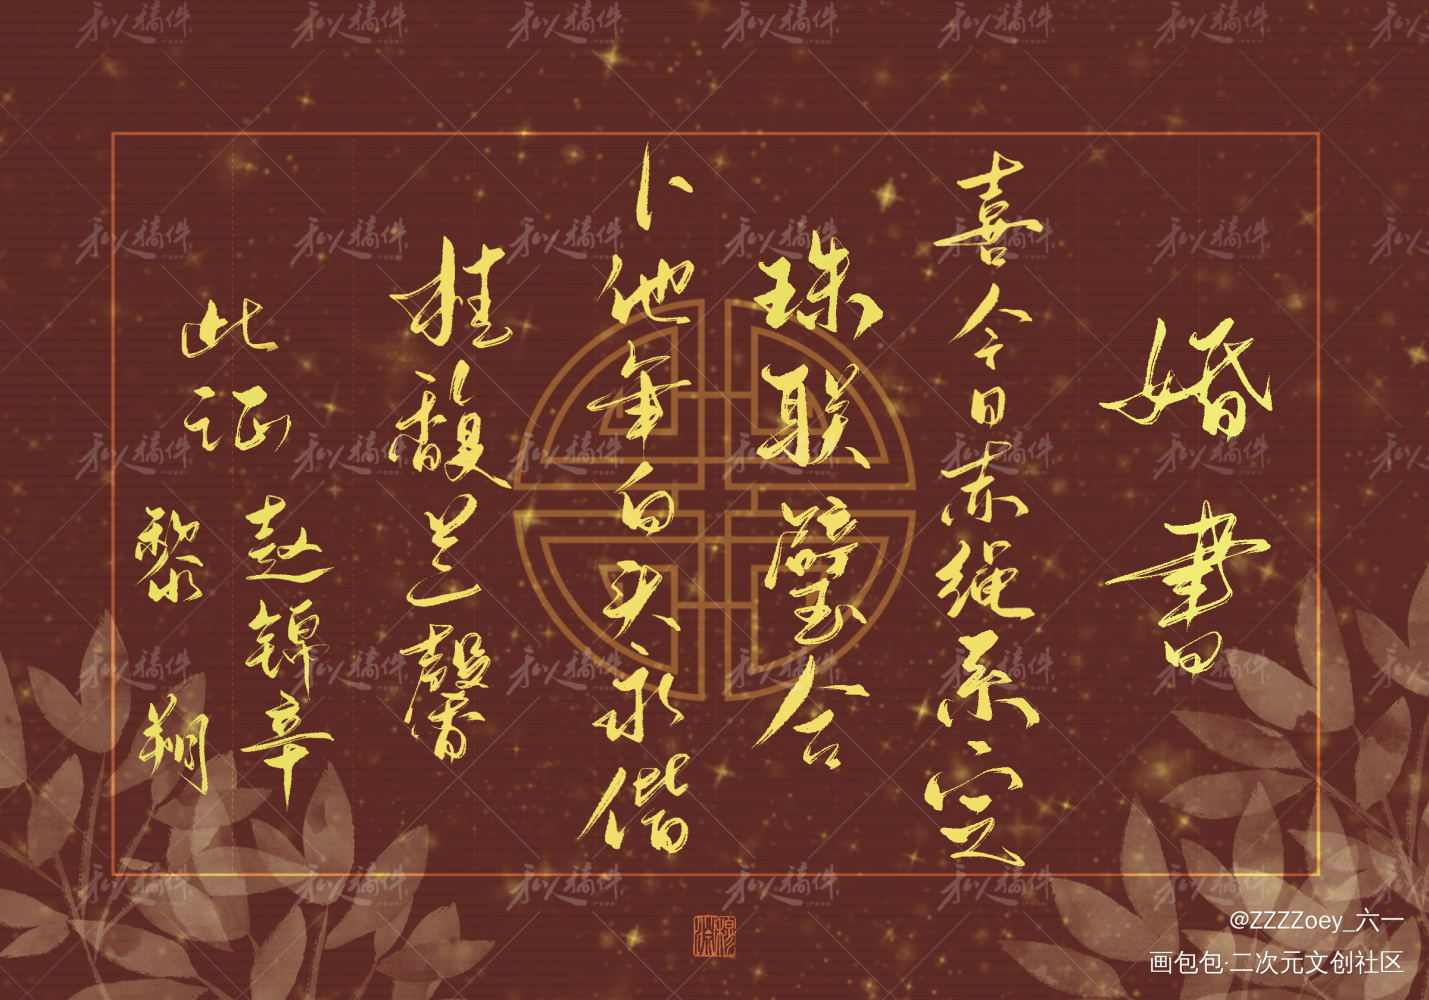 婚書
喜今日赤绳系定
珠联璧合
卜他年白头永偕
桂馥兰馨
此证
赵锦辛
黎朔
@ZZZZoey_六一
画包包·二次元文创社区
私人稿件